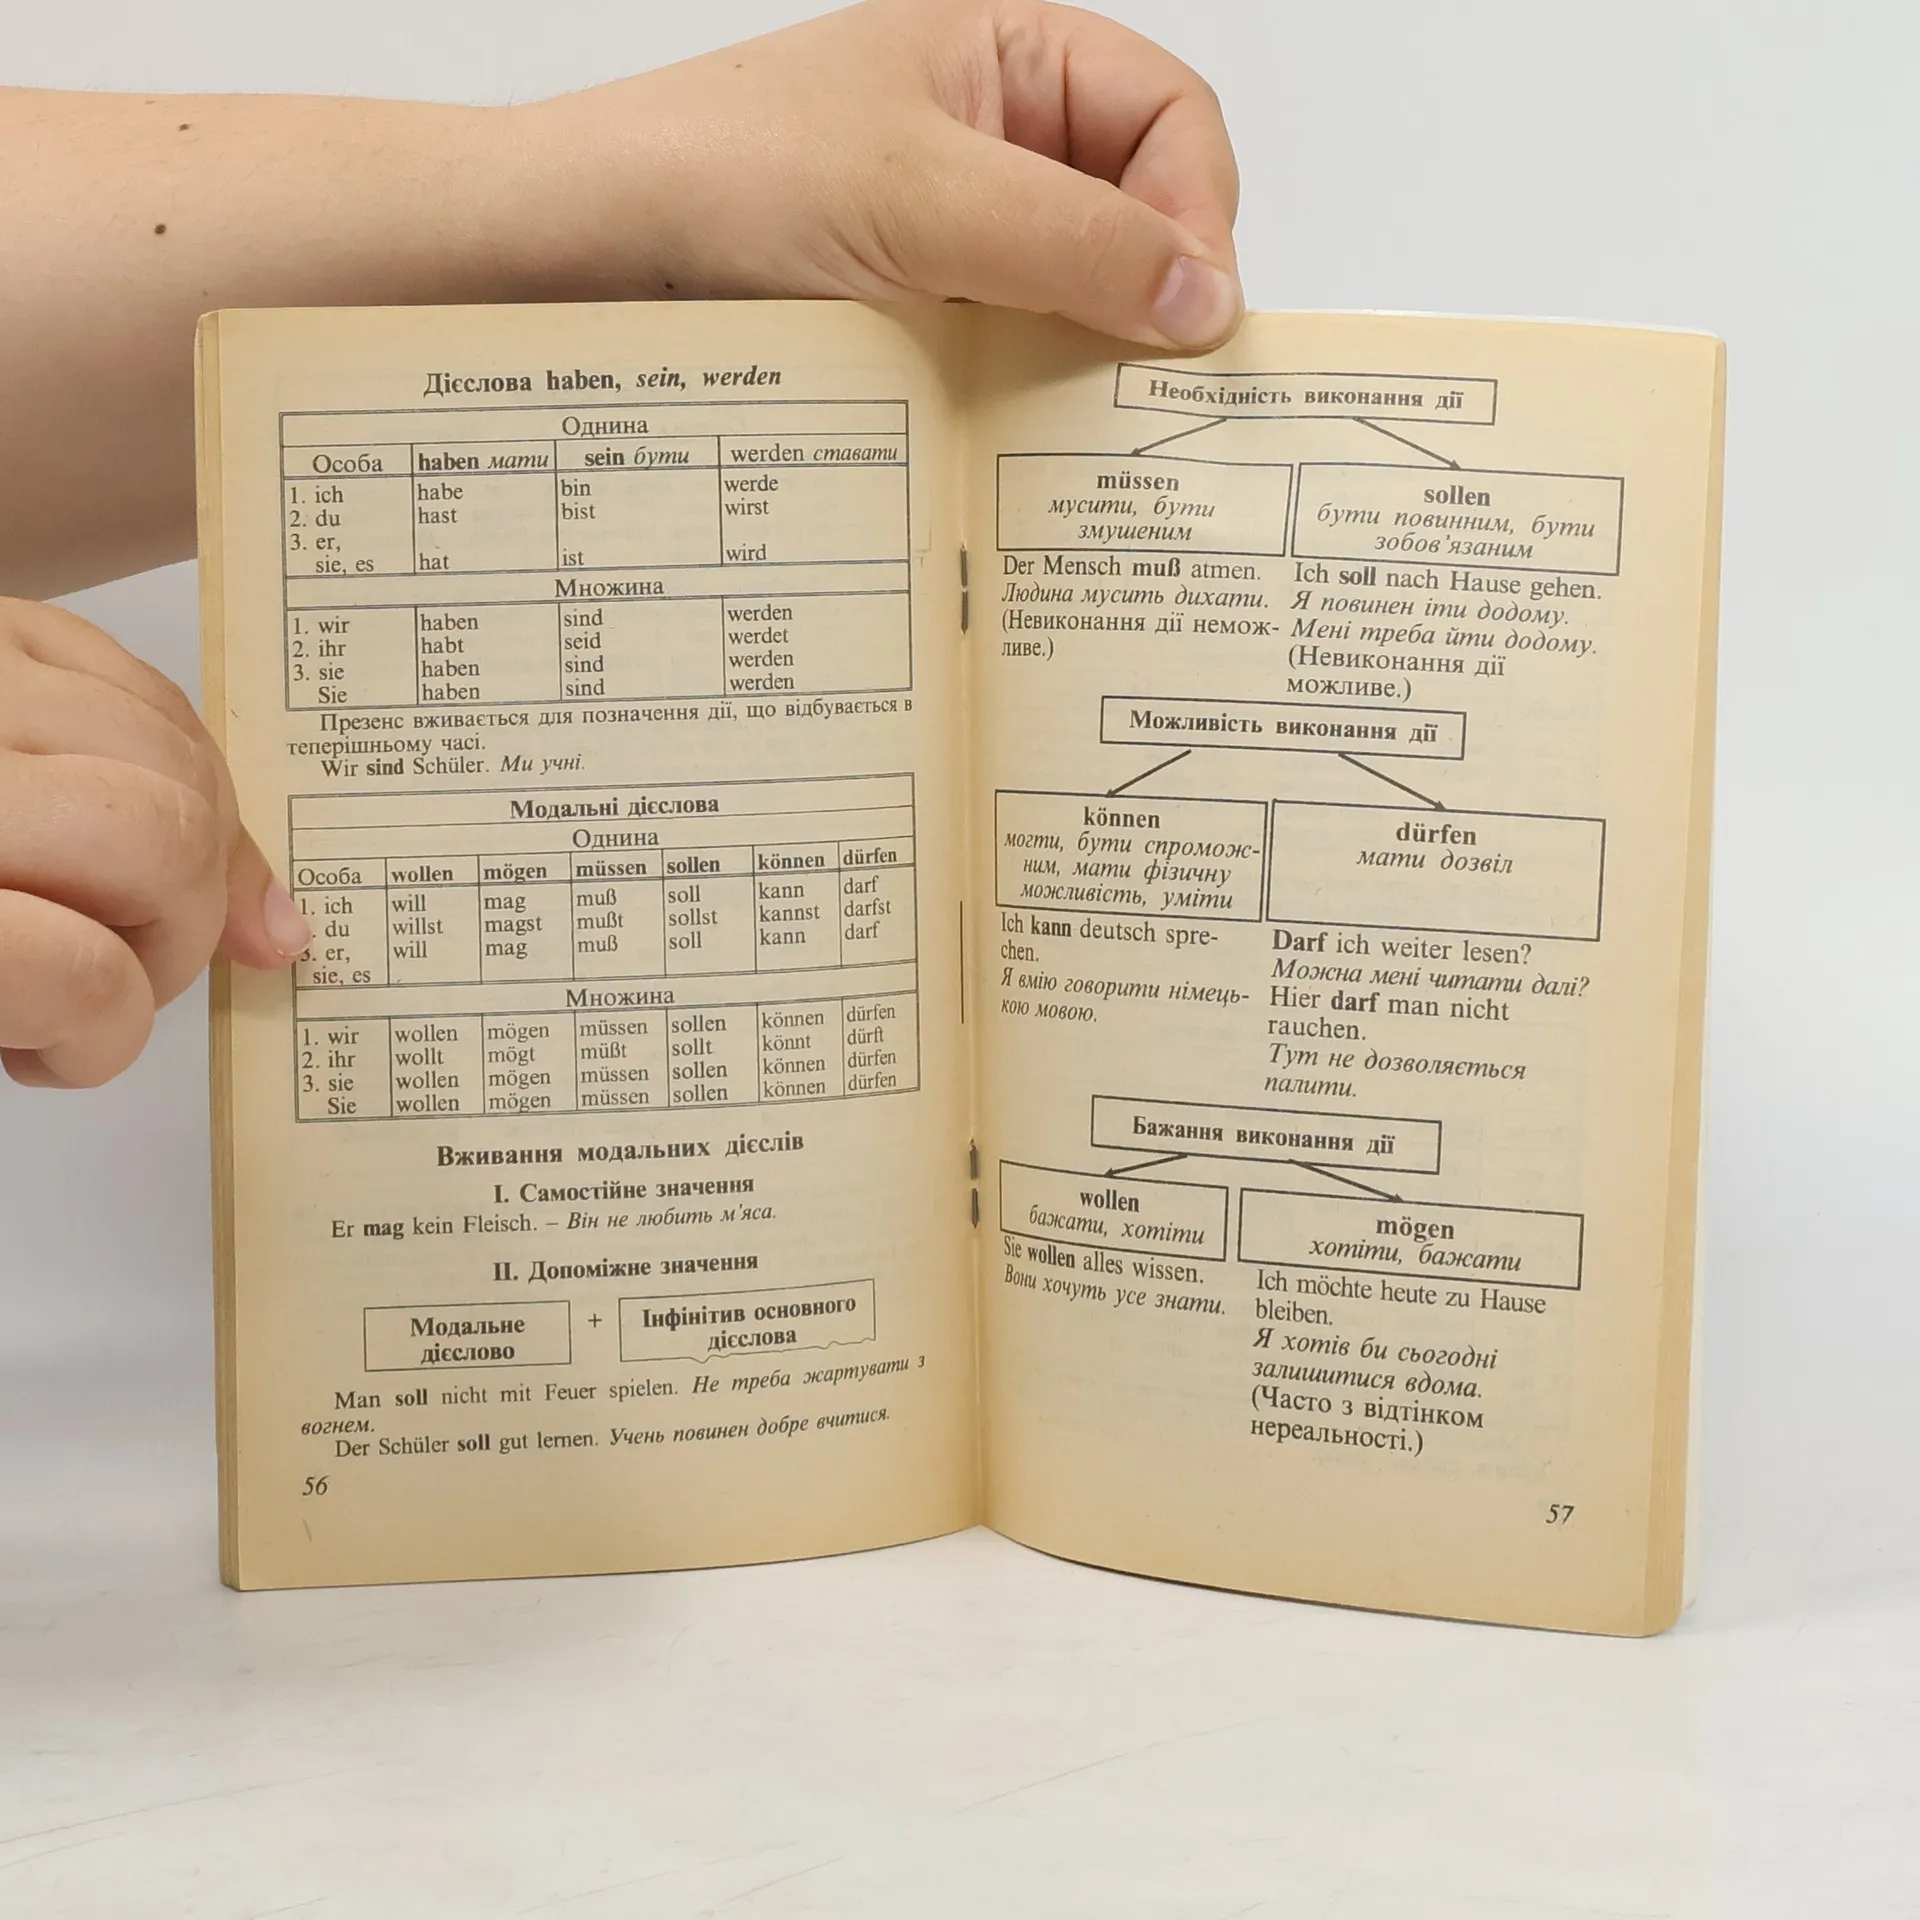 Дієслова haben, sein, werden
Однина
Особа haben мати sein бути werden ставати
1. ich habe bin werde
2. du hast bist wirst
3. er,
sie, es hat ist wird
Множина
1. wir haben sind werden
2. ihr habt seid werdet
3. sie haben sind werden
Sie haben sind werden
Презенс вживається для позначення дії, що відбувається в
теперішньому часі.
Wir sind Schüler. Ми учні.
Модальні дієслова
Однина
Особа wollen mögen müssen sollen können dürfen
1. ich will mag muß soll kann darf
. du willst magst mußt sollst kannst darfst
3. er, will mag muß soll kann darf
sie, es
Множина
1. wir wollen mögen müssen sollen können dürfen
2. ihr wollt mögt müßt sollt könnt dürft
3. sie wollen mögen müssen sollen können dürfen
Sie wollen mögen müssen sollen können dürfen
Вживання модальних дієслів
I. Самостійне значення
Er mag kein Fleisch. – Він не любить м'яса.
II. Допоміжне значення
Модальне
дієслово
+
Інфінітив основного
дієслова
Man soll nicht mit Feuer spielen. Не треба жартувати з
вогнем.
Der Schüler soll gut lernen. Учень повинен добре вчитися.
56
Необхідність виконання дії
müssen
мусити, бути
змушеним
Der Mensch muß atmen.
Людина мусить дихати.
(Невиконання дії немож-
ливе.)
sollen
бути повинним, бути
зобов'язаним
Ich soll nach Hause gehen.
Я повинен іти додому.
Мені треба йти додому.
(Невиконання дії
можливе.)
Можливість виконання дії
können
могти, бути спромож-
ним, мати фізичну
можливість, уміти
Ich kann deutsch spre-
chen.
Я вмію говорити німець-
кою мовою.
dürfen
мати дозвіл
Darf ich weiter lesen?
Можна мені читати далі?
Hier darf man nicht
rauchen.
Тут не дозволяється
палити.
Бажання виконання дії
wollen
бажати, хотіти
Sie wollen alles wissen.
Вони хочуть усе знати.
mögen
хотіти, бажати
Ich möchte heute zu Hause
bleiben.
Я хотів би сьогодні
залишитися вдома.
(Часто з відтінком
нереальності.)
57